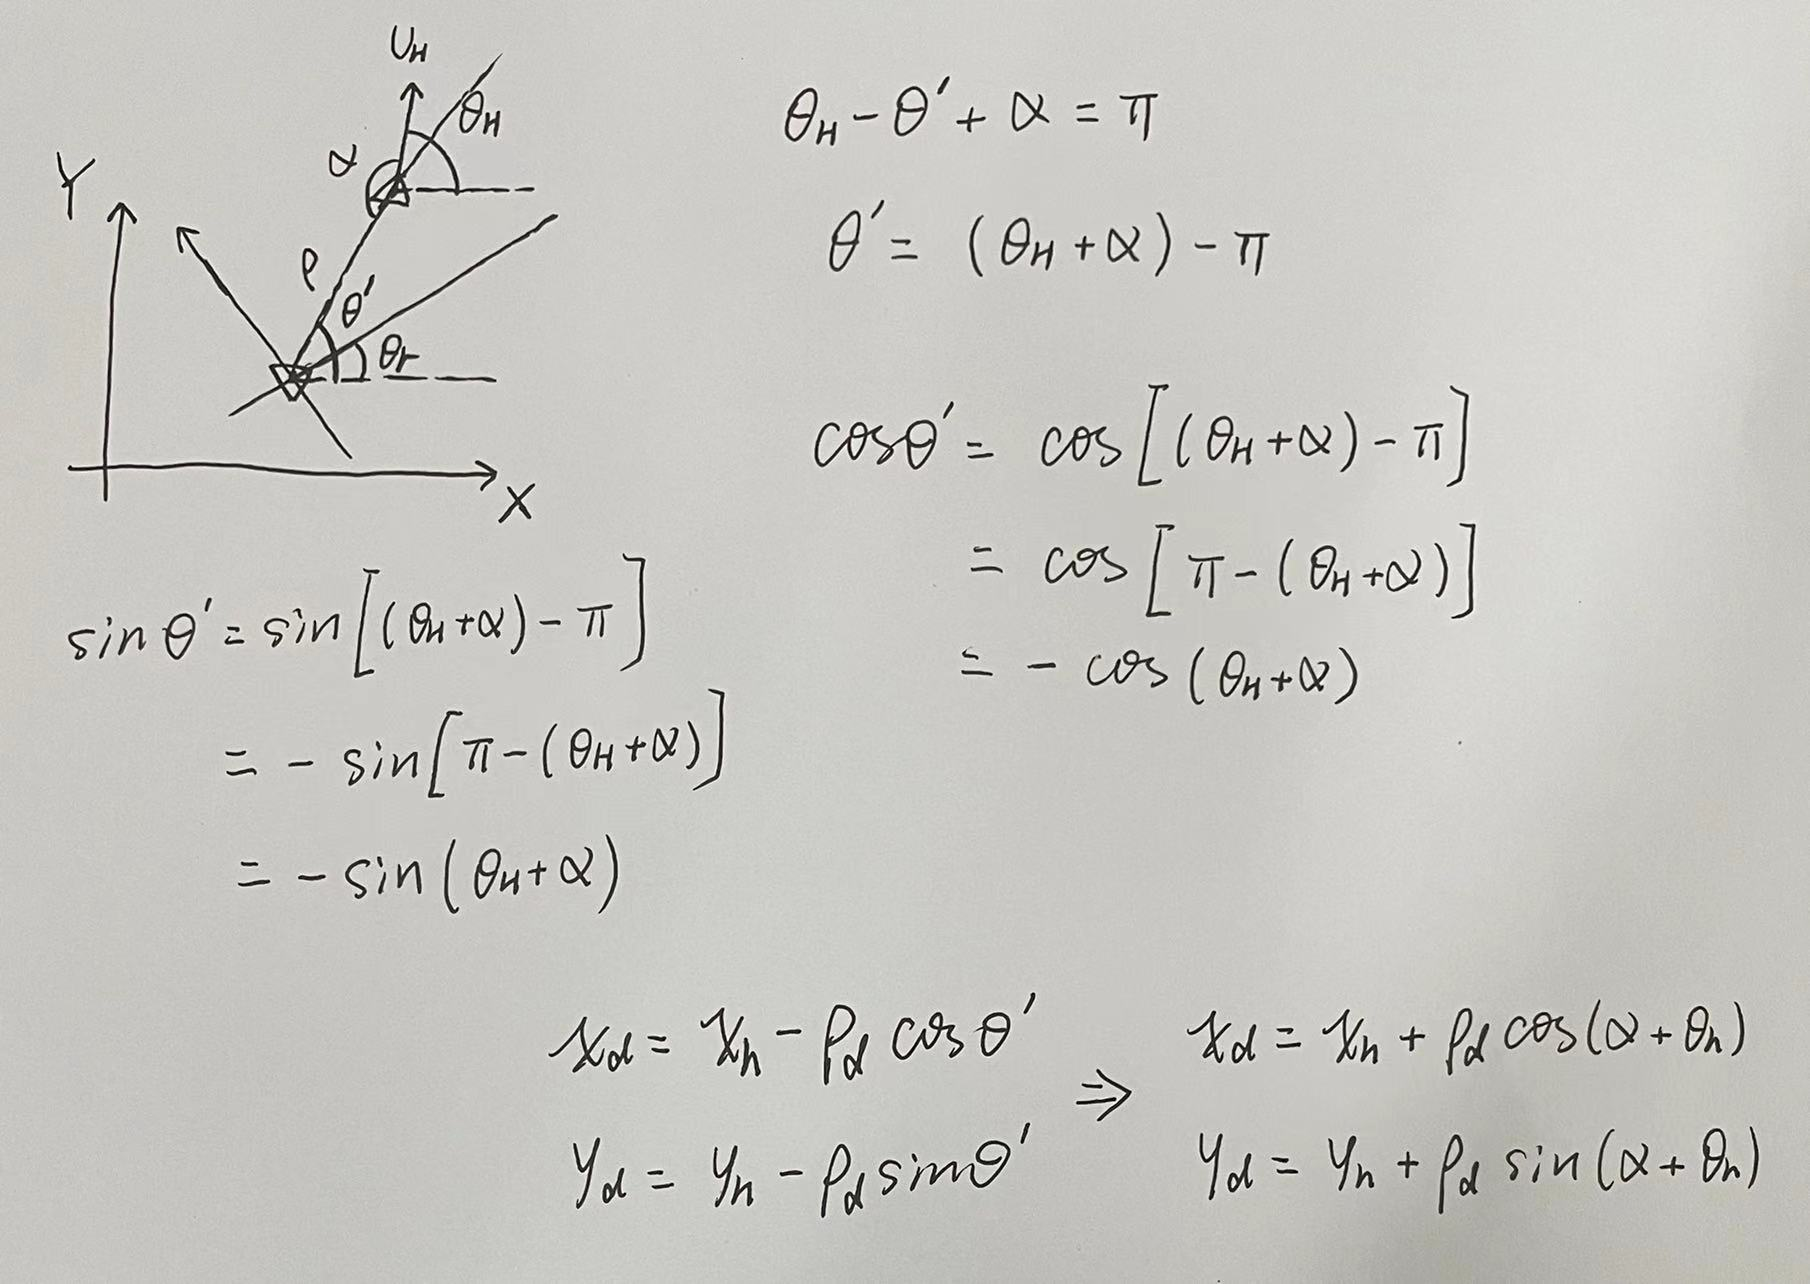 U_H
θ_H
α
Y
ρ
θ'
θr
X
θ_H - θ' + α = π
θ' = (θ_H + α) - π
cosθ' = cos[(θ_H + α) - π]
= cos[π - (θ_H + α)]
= - cos(θ_H + α)
sin θ' = sin[(θ_H + α) - π]
= - sin[π - (θ_H + α)]
= - sin(θ_H + α)
x_d = x_h - ρ_d cos θ'
y_d = y_h - ρ_d sin θ'
⇒
x_d = x_h + ρ_d cos(α + θ_h)
y_d = y_h + ρ_d sin(α + θ_h)